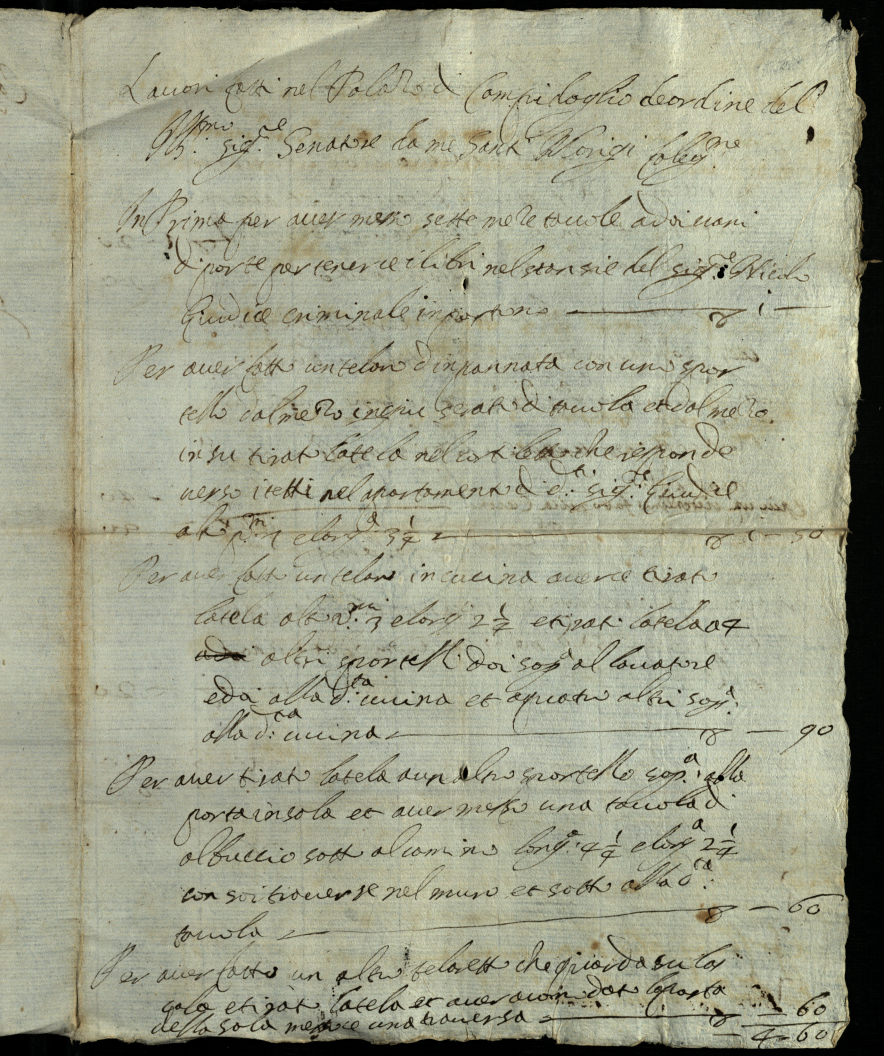 Lavori fatti nel Palazzo di Campidoglio de ordine del
Ill.mo sig.re Senatore da me Sant. Morigi faleg.me
In Prima per aver messo sette meze tavole a doi vani
di porte per tenerce i libri nel stansie del sig.re Nicolo
Giudice criminale inportano — 1 —
Per aver fatto un telaro d inpannata con uno spor
tello dal mezo ingiu serato di tavola et dal mezo
in su tirato la tela nel che risponde
verso i tetti nel apartamento di d.to sig.re Giudice
alto p.mi elarg.o 3 1/4 — 1 – 50
Per aver fatto un telaro in cucina averce tirato
la tela alt. p.mi 3 e larg. 2 1/4 et tirato la tela a 4
altri sportelli doi sop.a al lavatore
e doi alla d.ta cucina et a quatro altri sop.a
alla d.ta cucina — – 90
Per aver tirato la tela a un altro sportello sop.a alla
porta in sala et aver messo una tavola di
albuccio sotto al camino long.a 4 1/4 e larg.a 2 1/4
con soi traverse nel muro et sotto alla d.ta
tavola — – 60
Per aver fatto un altro telaretto che guarda su la
sala et tirato la tela et aver la porta
della sala messoce una traversa — – 60
4 – 60